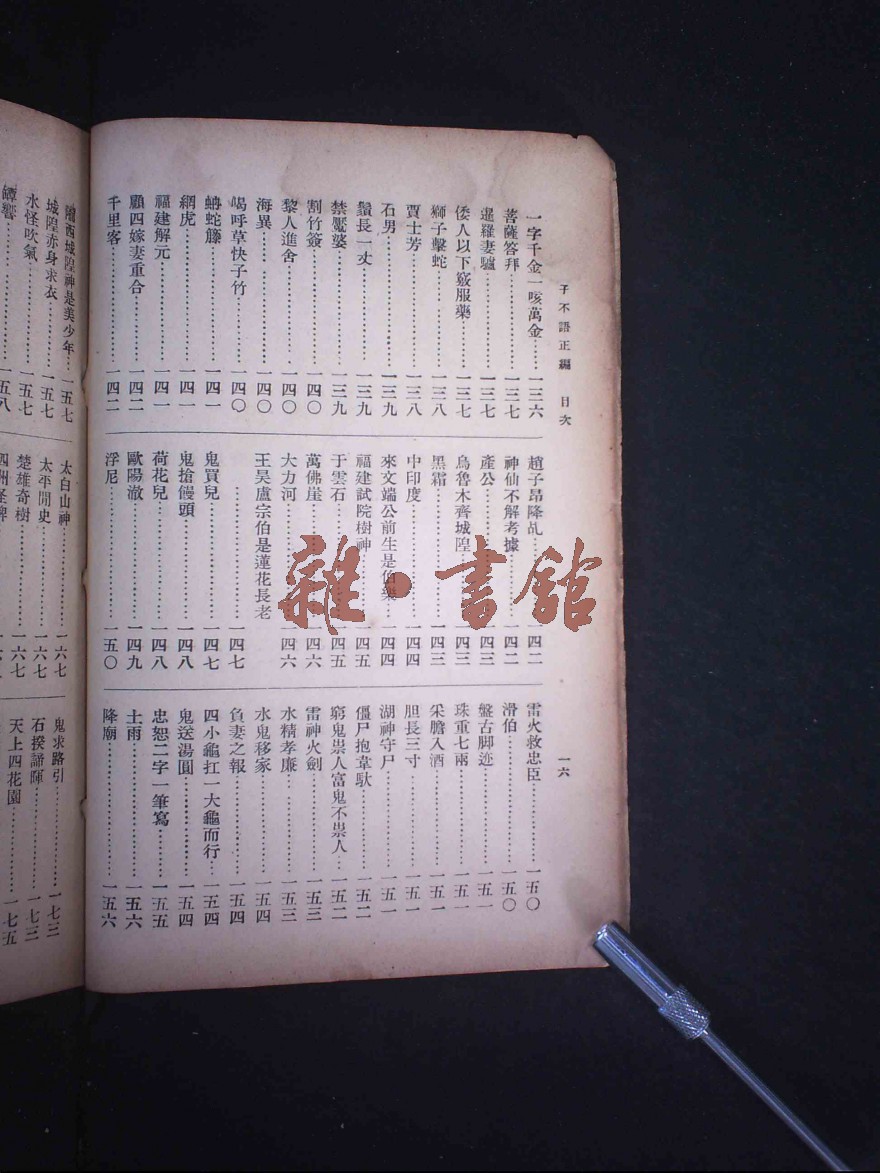 子不語正編 目次 一六
一字千金一咳萬金……一三六
菩薩答拜……一三七
暹羅妻驢……一三七
倭人以下竅服藥……一三七
獅子擊蛇……一三八
賈士芳……一三八
石男……一三九
鬚長一丈……一三九
禁魘婆……一三九
割竹簽……一四〇
黎人進舍……一四〇
海異……一四〇
喝呼草快子竹……一四〇
蚺蛇籐……一四一
網虎……一四一
福建解元……一四一
顧四嫁妻重合……一四二
千里客……一四二
趙子昂降乩……一四二
神仙不解考據……一四二
產公……一四三
烏魯木齊城隍……一四三
黑霜……一四三
中印度……一四四
來文端公前生是伯樂……一四四
福建試院樹神……一四五
于雲石……一四五
萬佛崖……一四六
大力河……一四六
王昊廬宗伯是蓮花長老
……一四七
鬼買兒……一四七
鬼搶饅頭……一四八
荷花兒……一四八
歐陽澈……一四九
浮尼……一五〇
雷火救忠臣……一五〇
滑伯……一五〇
盤古脚迹……一五一
珠重七兩……一五一
采膽入酒……一五一
胆長三寸……一五一
湖神守尸……一五一
僵尸抱韋馱……一五二
窮鬼祟人富鬼不祟人……一五二
雷神火劍……一五三
水精孝廉……一五三
水鬼移家……一五四
負妻之報……一五四
四小龜扛一大龜而行……一五四
鬼送湯圓……一五四
忠恕二字一筆寫……一五五
土雨……一五六
降廟……一五六
隴西城隍神是美少年……一五七
城隍赤身求衣……一五七
水怪吹氣……一五七
罈響……一五八
太白山神……一六七
太平閒史……一六七
楚雄奇樹……一六七
鬼求路引……一七三
石揆諦暉……一七三
天上四花園……一七五
雜·書館